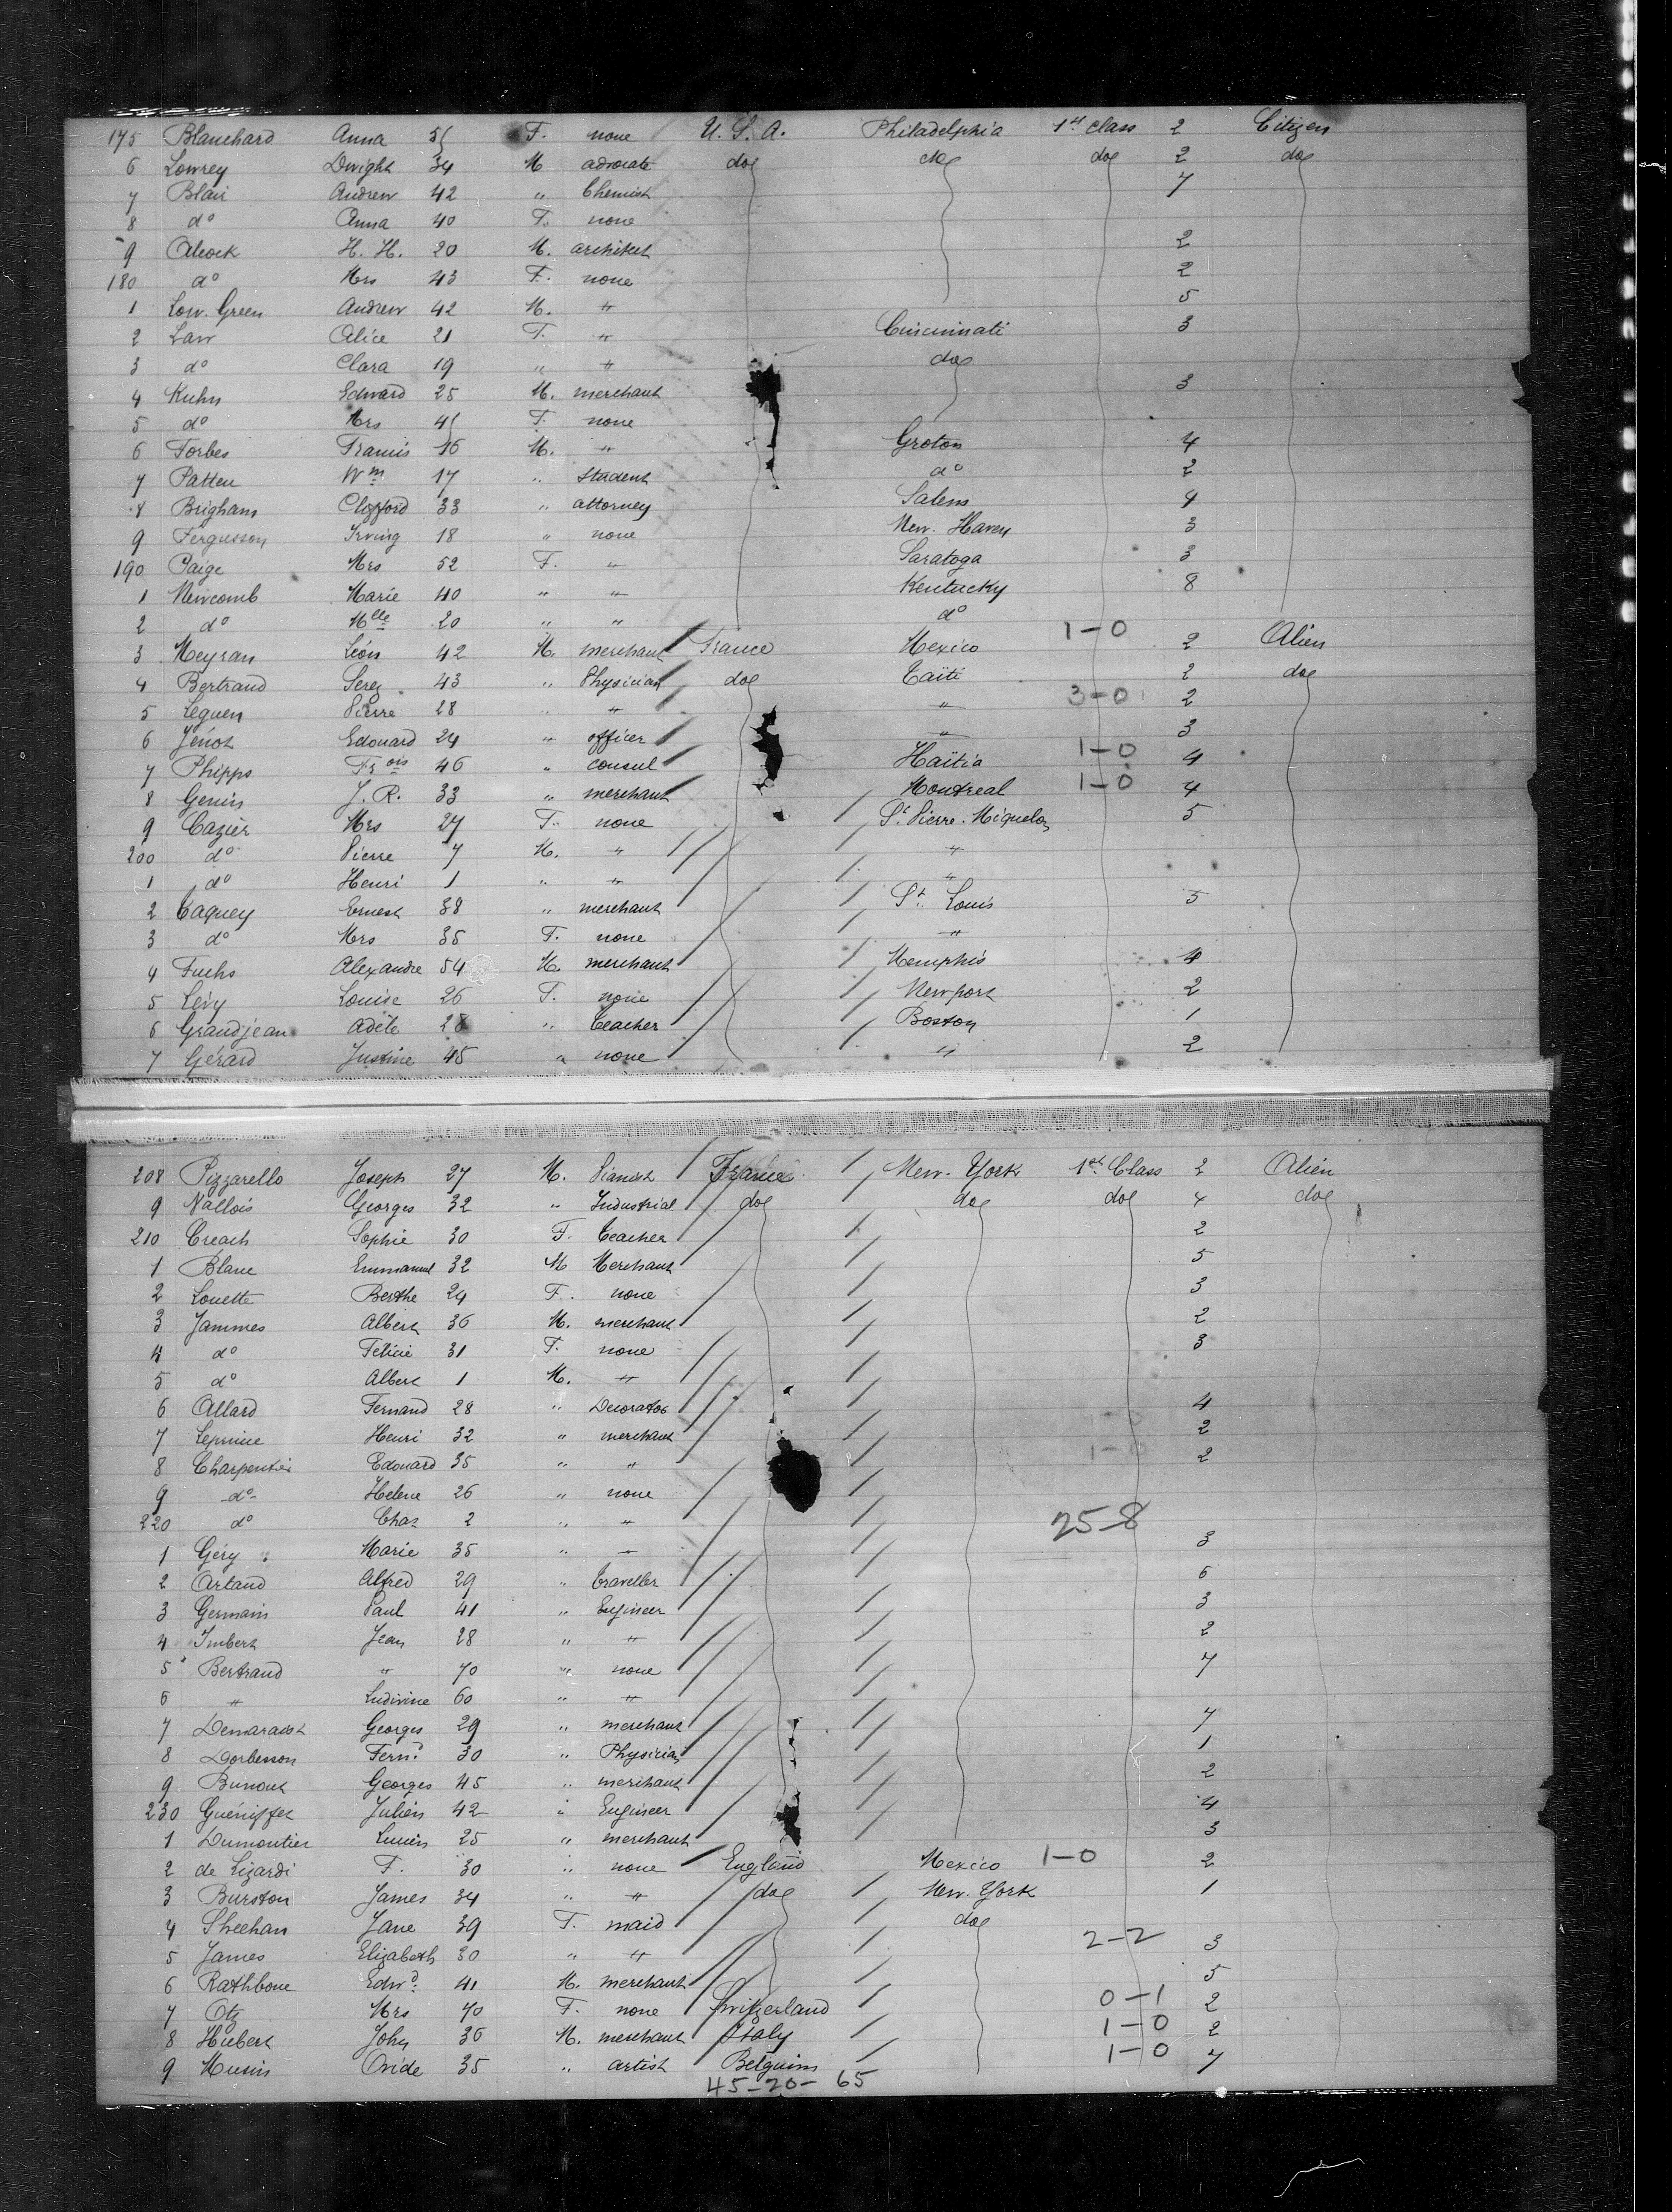 175 Blanchard Anna F. none U. S. A. Philadelphia 1st class 2 Citizen
6 Lowrey Dwight 34 M advocate do do do 2 do
7 Blair Andrew 42 " Chemist 7
8 do Anna 40 F. none
9 Alcock H. H. 20 M. architect 2
180 do Mrs 43 F. none 2
1 Low. Green Andrew 42 M. " 5
2 Law Alice 21 F. " Cincinnati 3
3 do Clara 19 " " do
4 Kuhn Edward 25 M. merchant 3
5 do Mrs F. none
6 Forbes Francis 16 M. " Groton 4
7 Patten Wm 17 " Student do 2
8 Brigham Clifford 33 " attorney Salem 4
9 Fergusson Irving 18 " none New. Haven 3
190 Paige Mrs 52 F. " Saratoga 3
1 Newcomb Marie 40 " " Kentucky 8
2 do Mlle 20 " " do
3 Meyran Léon 42 M. merchant France Mexico 1-0 2 Alien
4 Bertrand 43 " Physician do Taïti 2 do
5 Leguen Pierre 28 " " " 3-0 2
6 Jénot Edouard 24 " officer " 3
7 Phipps Frois 46 " consul Haïtia 1-0 4
8 Genin J. R. 33 " merchant Montreal 1-0 4
9 Cazier Mrs 27 F. none St. Pierre. Miquelon 5
200 do Pierre 7 M. " "
1 do Henri 1 " " "
2 Caquey Ernest 38 " merchant St. Louis 5
3 do Mrs 35 F. none "
4 Fuchs Alexandre 54 M. merchant Memphis 4
5 Lévy Louise 26 F. none Newport 2
6 Grandjean Adèle 28 " Teacher Boston 1
7 Gérard Justine 45 " none " 2
208 Pizzarello Joseph 27 M. Pianist France New. York 1st Class 2 Alien
9 Nallois Georges 32 " Industrial do do do 4 do
210 Creach Sophie 30 F. Teacher 2
1 Blanc Emmanuel 32 M Merchant 5
2 Louette Berthe 24 F. none 3
3 Jammes Albert 36 M. merchant 2
4 do Félicie 31 F. none 3
5 do Albert 1 M. "
6 Allard Fernand 28 " Decorator 4
7 Leprince Henri 32 " merchant 2
8 Charpentier Edouard 35 " " 2
9 do Helene 26 " none
220 do Chas 2 " " 25-8
1 Géry Marie 35 " " 3
2 Artaud Alfred 29 " Traveller 6
3 Germain Paul 41 " Engineer 3
4 Imbert Jean 28 " " 2
5 Bertrand " 70 " none 7
6 " Ludivine 60 " "
7 Georges 29 " merchant 7
8 Dorbesson Fernd 30 " Physician 1
9 Bunout Georges 45 " merchant 2
230 Guéniffet Julien 42 " Engineer 4
1 Dumontier Lucien 25 " merchant 3
2 de Lizardi F. 30 " none England Mexico 1-0 2
3 Burston James 34 " " do New. York 1
4 Sheehan Jane 39 F. maid do
5 James Elizabeth 30 " " 2-2 3
6 Rathbone Edwd. 41 M. merchant 5
7 Otz Mrs 70 F. none Switzerland 0-1 2
8 Hubert John 36 M. merchant Italy 1-0 2
9 Musin Ovide 35 " artist Belguim 1-0 7
45-20- 65